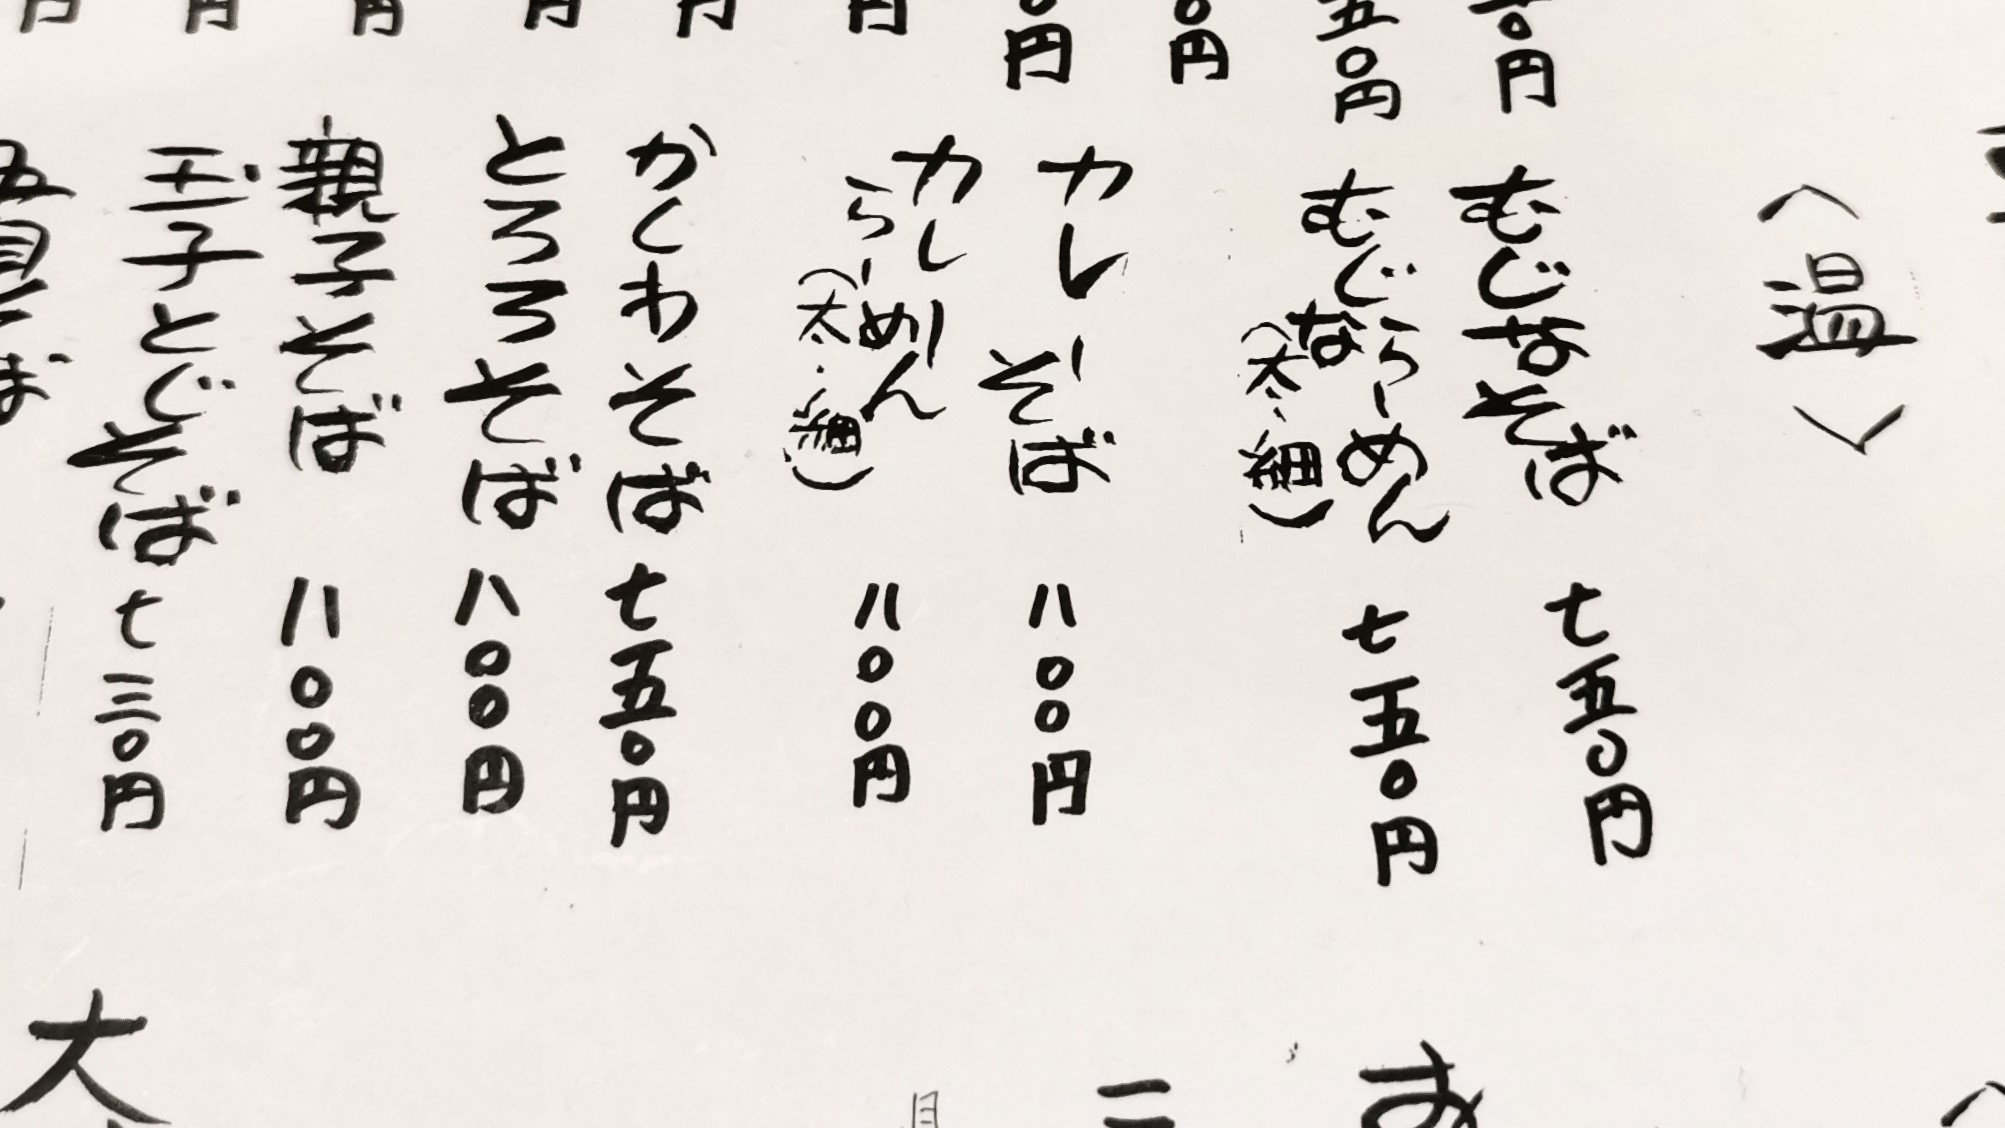 〈温〉
むじなそば 七五〇円
むじならーめん(太・細) 七五〇円
カレーそば 八〇〇円
カレーらーめん(太・細) 八〇〇円
かくわそば 七五〇円
とろろそば 八〇〇円
親子そば 八〇〇円
玉子とじそば 七三〇円